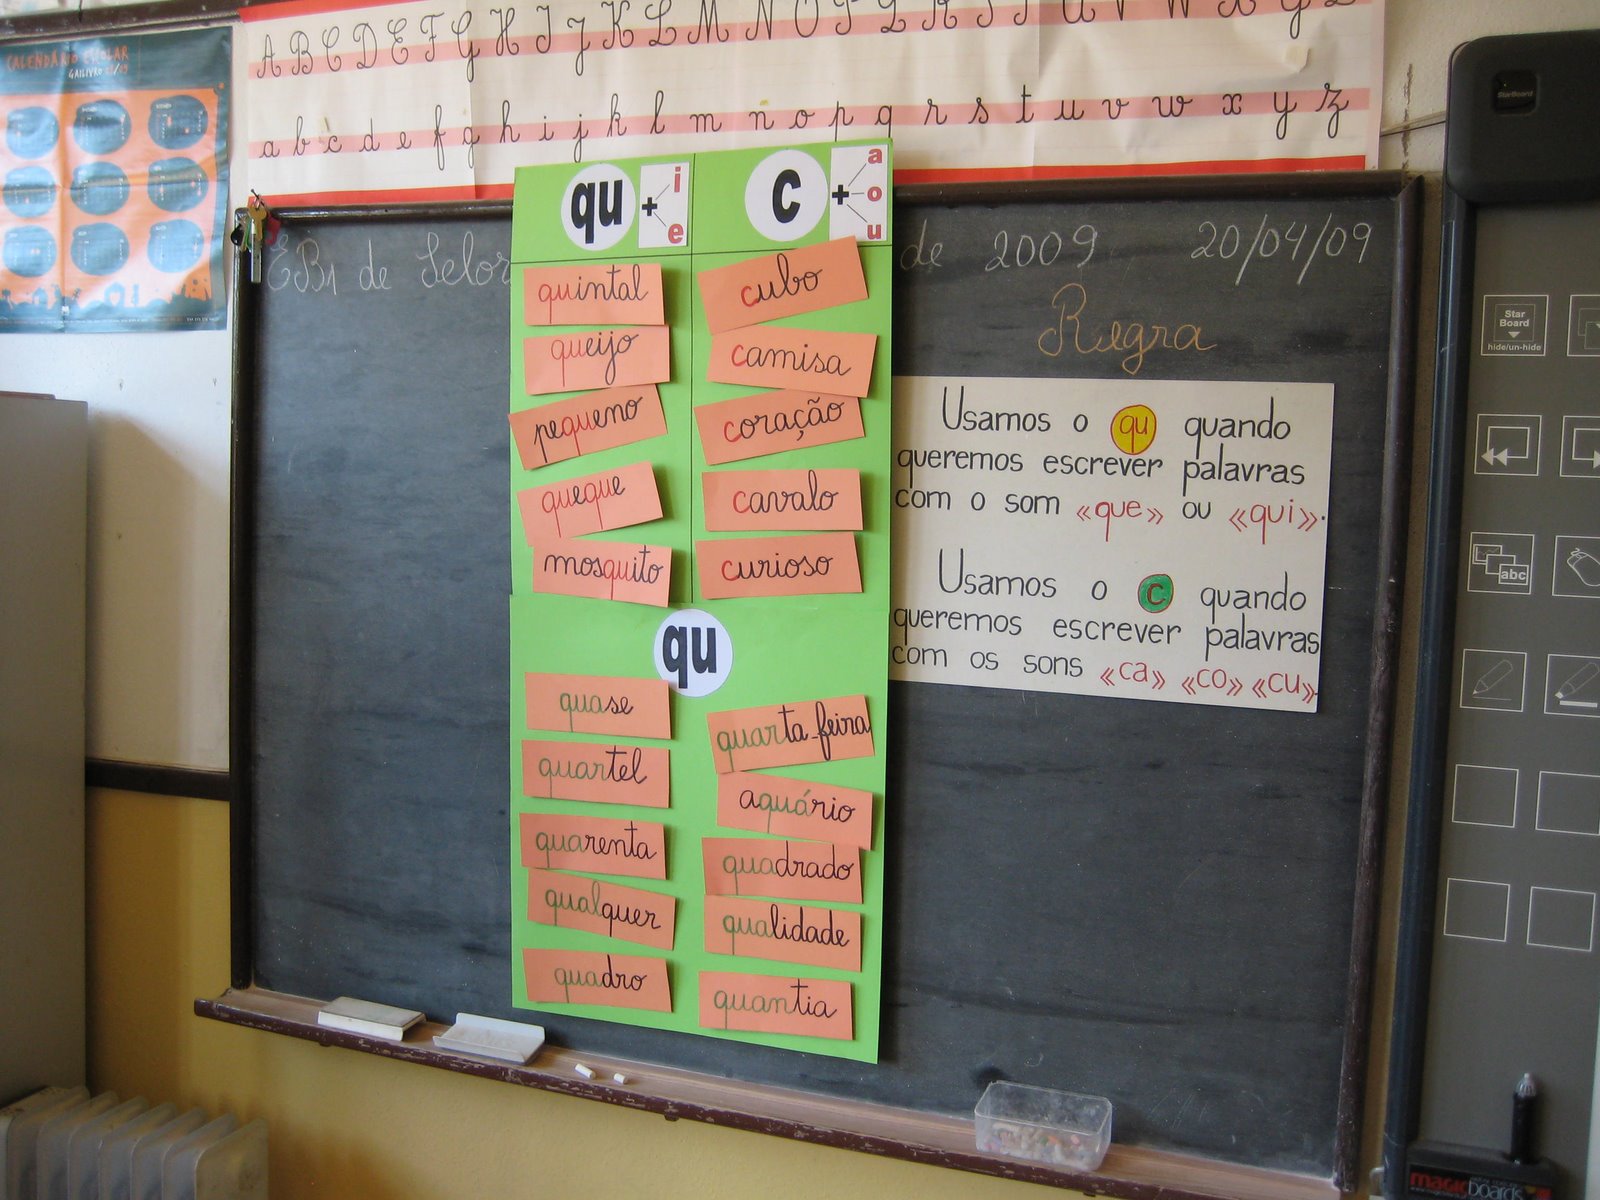 CALENDÁRIO ESCOLAR
GAILIVRO 08/09
A B C D E F G H I J K L M N O P Q R S T U V W X Y Z
a b c d e f g h i j k l m n o p q r s t u v w x y z
EB1 de
de 2009
20/04/09
qu + i e
c + a o u
quintal
queijo
pequeno
queque
mosquito
cubo
camisa
coração
cavalo
curioso
qu
quase
quartel
quarenta
qualquer
quadro
quarta-feira
aquário
quadrado
qualidade
quantia
Regra
Usamos o qu quando
queremos escrever palavras
com o som «que» ou «qui».
Usamos o c quando
queremos escrever palavras
com os sons «ca» «co» «cu».
StarBoard
Star
Board
hide/un-hide
abc
magicboards